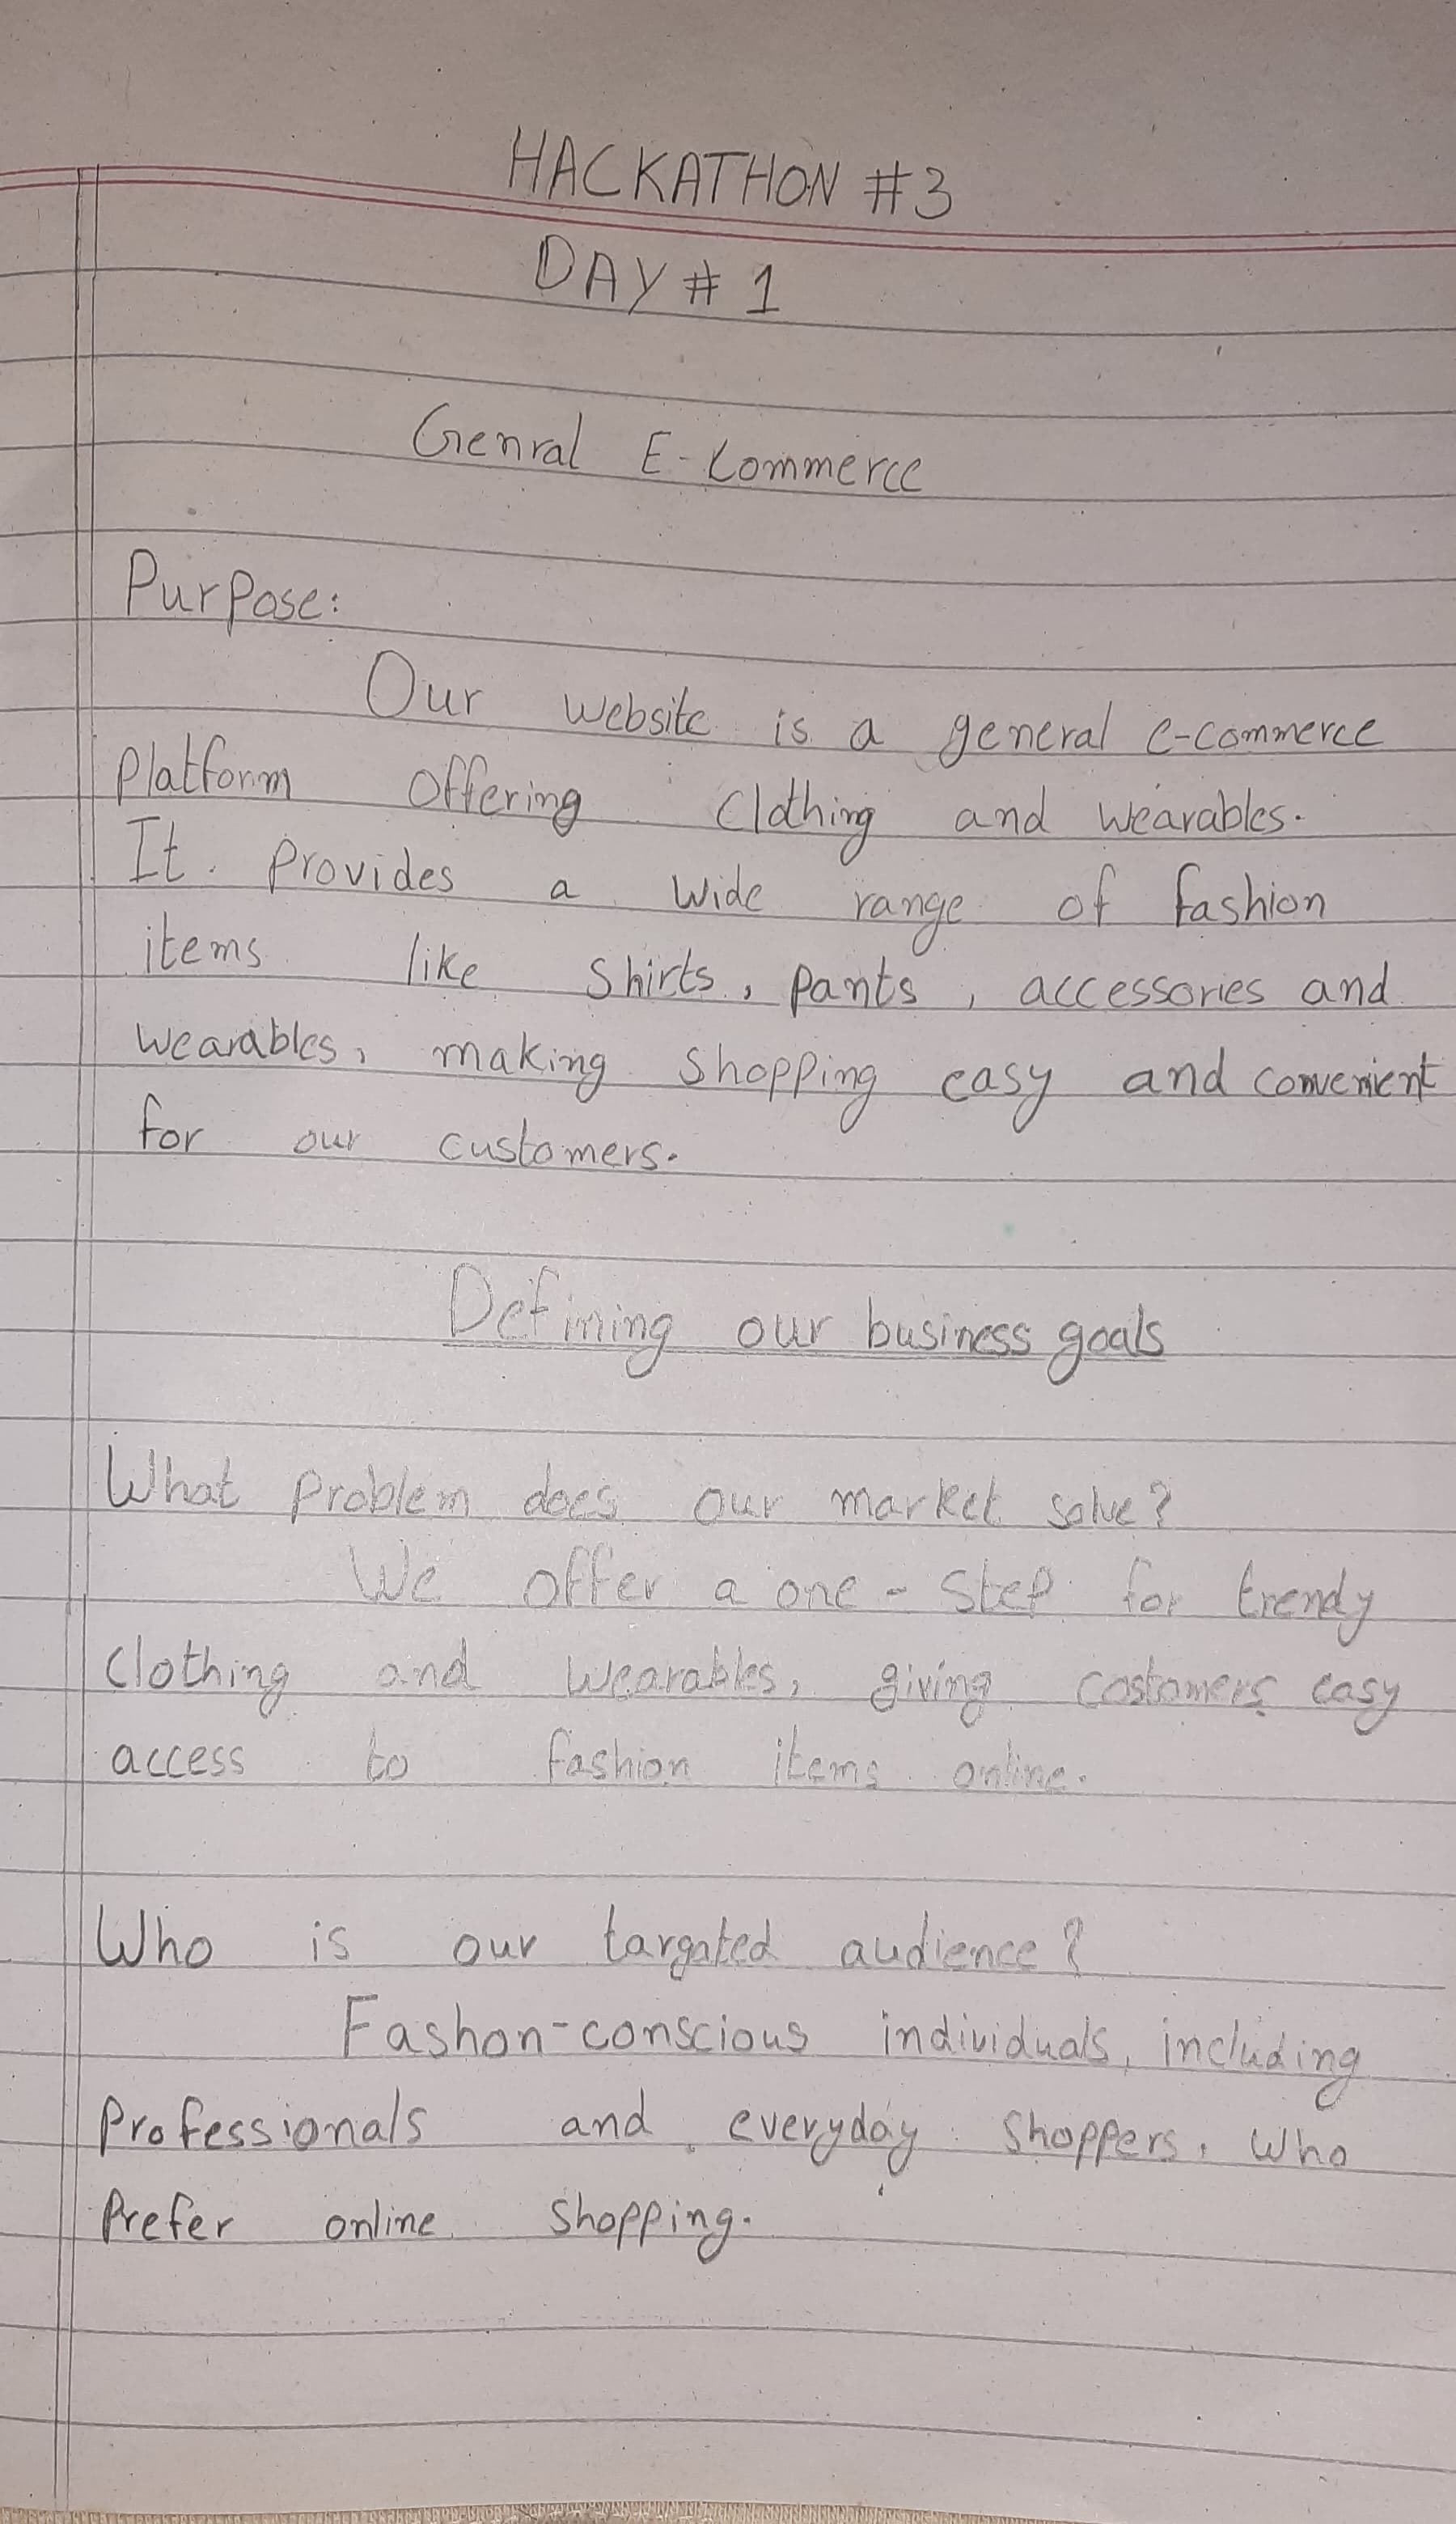 HACKATHON #3
DAY # 1
Genral E-Commerce
Purpose:
Our website is a general e-commerce
Platform offering Clothing and wearables.
It provides a wide range of fashion
items like Shirts, pants, accessories and
wearables, making shopping easy and convenient
for our customers.
Defining our business goals
What problem does our market solve?
We offer a one-step for trendy
Clothing and wearables, giving costomers easy
access to fashion items online.
Who is our targated audience?
Fashon-conscious individuals, including
Professionals and everyday Shoppers, who
Prefer online shopping.